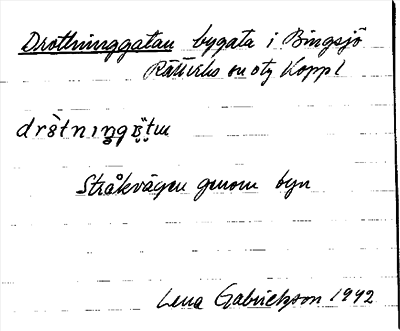 Drottninggatan bygata i Bingsjö
Rättviks sn otg Koppl
Stråkvägen genom byn
Lena Gabrielsson 1942